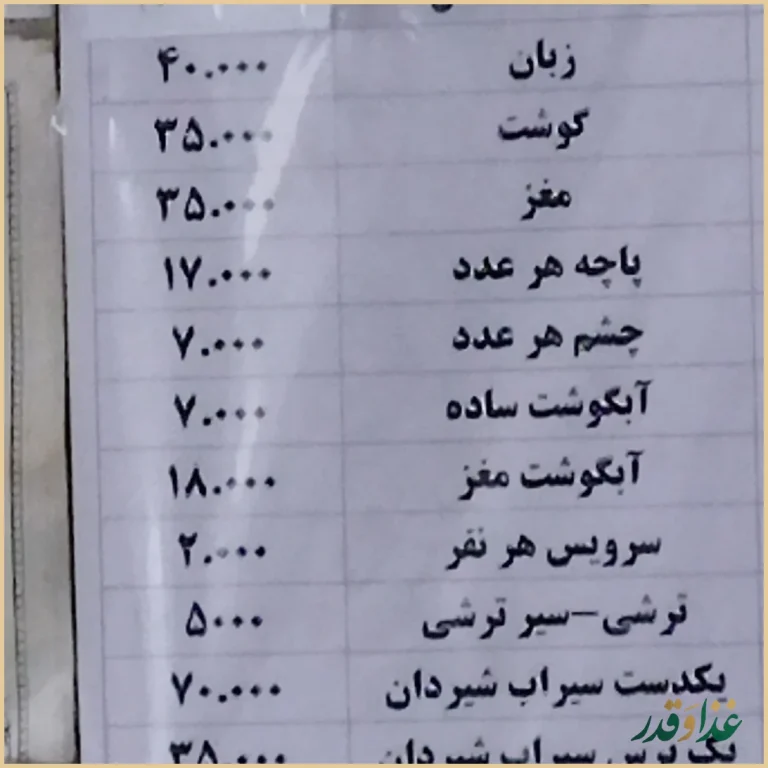 زبان ۴۰.۰۰۰
گوشت ۳۵.۰۰۰
مغز ۳۵.۰۰۰
پاچه هر عدد ۱۷.۰۰۰
چشم هر عدد ۷.۰۰۰
آبگوشت ساده ۷.۰۰۰
آبگوشت مغز ۱۸.۰۰۰
سرویس هر نفر ۲.۰۰۰
ترشی-سیر ترشی ۵۰۰۰
یکدست سیراب شیردان ۷۰.۰۰۰
یک پرس سیراب شیردان ۳۸.۰۰۰
غذا و قدر